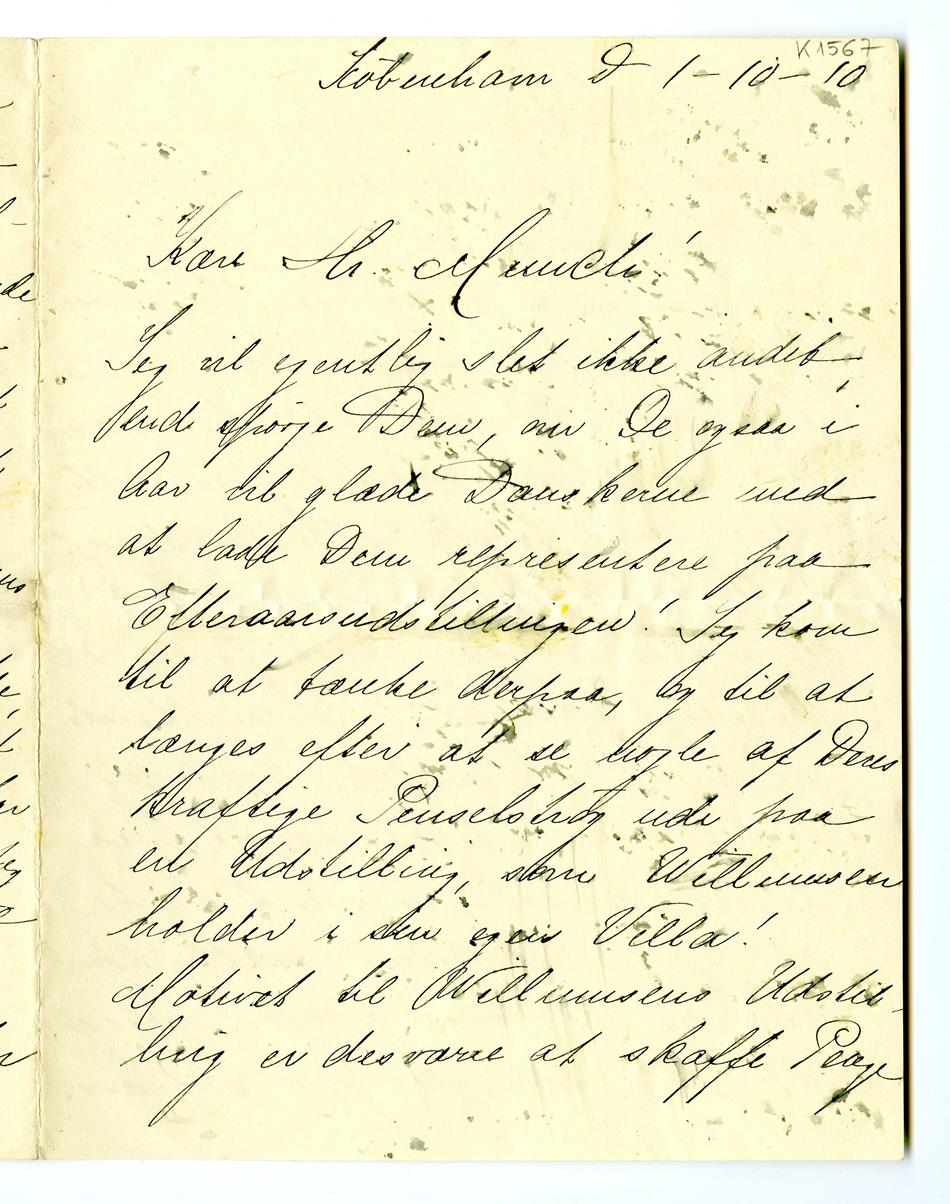 K1567
København d 1-10-10
Kære Hr. Munch!
Jeg vil egentlig slet ikke andet
end spørge Dem, om De ogsaa i
Aar vil glæde Danskerne med
at lade Dem representere paa
Efteraarsudstillingen! Jeg kom
til at tænke derpaa, og til at
længes efter at se nogle af Deres
kraftige Penselstrøg ude paa
en Udstilling, som Willumsen
holder i sin egen Villa!
Motivet til Willumsens Udstil-
ling er desværre at skaffe Penge